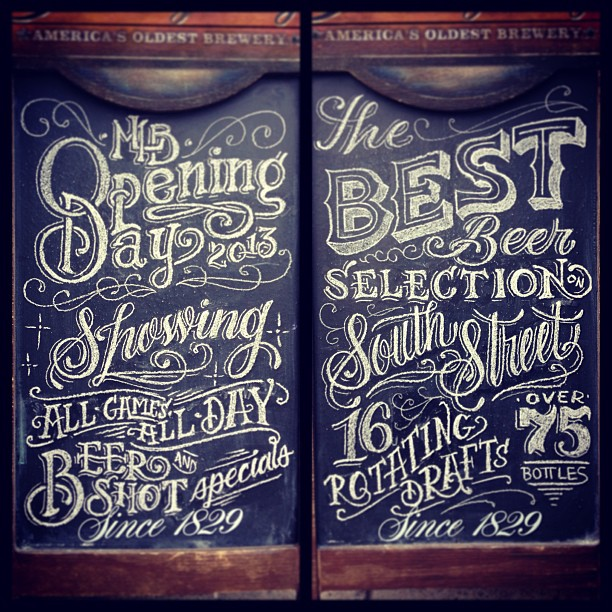 AMERICA'S OLDEST BREWERY
MLB
Opening
Day 2013
Showing
ALL GAMES ALL DAY
BEER AND SHOT specials
Since 1829
AMERICA'S OLDEST BREWERY
The
BEST
Beer
SELECTION ON
South Street
16 ROTATING DRAFTS
OVER
75
BOTTLES
Since 1829